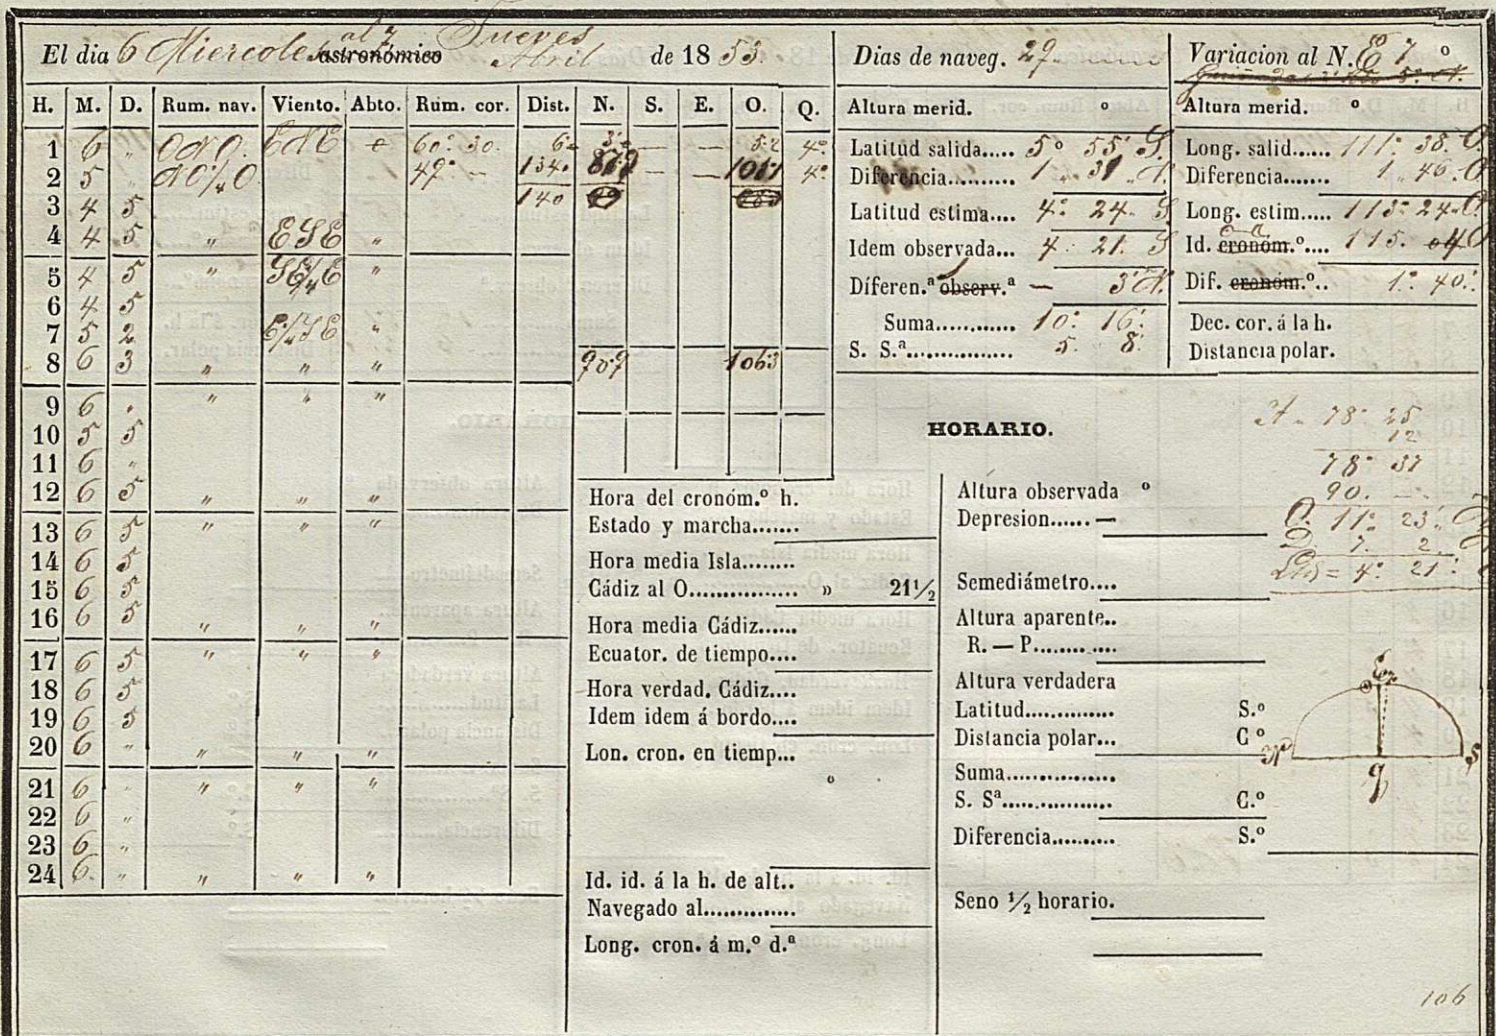 El dia 6 Miercoles al 7 Jueves astronómico Abril de 1853.
Dias de naveg. 29
Variacion al N. E 7 º
H. M. D. Rum. nav. Viento. Abto. Rum. cor. Dist. N. S. E. O. Q.
1 6 " ONO. ENE e 60º 30. 6" 3'2 — — 5'2 4º
2 5 " NO¼O. 49º — 134" 87'7 — — 101'1 4º
3 4 5 140
4 4 5 " ESE "
5 4 5 " SE¼E "
6 4 5
7 5 2 E¼SE "
8 6 3 " " " 90'9 106'3
9 6 " " " "
10 5 5
11 6 "
12 6 5 " " "
13 6 5 " " "
14 6 5
15 6 5
16 6 5 " " "
17 6 5 " " "
18 6 5
19 6 5
20 6 " " " "
21 6 " " " "
22 6 "
23 6 "
24 6. " " " "
Altura merid. º
Latitud salida..... 5º 55' S.
Diferencia.......... 1 " 31 " N.
Latitud estima.... 4º 24" S
Idem observada... 4º 21' S
Díferen.ª observ.ª — 3' N.
Suma............ 10º 16'
S. S.ª................ 5. 8'
Altura merid. º
Long. salid...... 111º 38' O.
Diferencia....... 1 " 46" O
Long. estim..... 113º 24" O.
Id. cronóm.º.... 115. 04 O
Dif. cronóm.º.. 1º 40'
Dec. cor. á la h.
Distancia polar.
HORARIO.
A " 78º 25
12'
78º 37
90. — " —
O. 11º 23'
D. 7. 2.
Lat = 4º 21'
Hora del cronóm.º h.
Estado y marcha.......
Hora media Isla........
Cádiz al O............... » 21½
Hora media Cádiz......
Ecuator. de tiempo....
Hora verdad. Cádiz....
Idem idem á bordo....
Lon. cron. en tiemp...
º
Id. id. á la h. de alt..
Navegado al..............
Long. cron. á m.º d.ª
Altura observada º
Depresion...... —
Semediámetro....
Altura aparente..
R. — P............
Altura verdadera
Latitud.............. S.º
Distancia polar... C º
Suma................
S. Sª................. C.º
Diferencia.......... S.º
Seno ½ horario.
N
S
q
106